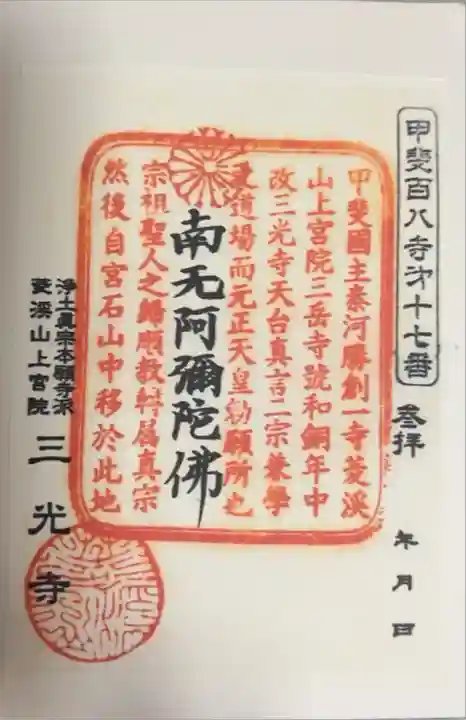 甲斐百八寺才十七番
参拝
年月日
甲斐國主秦河勝創一寺菱渓
山上宮院三岳寺號和銅年中
改三光寺天台真言二宗兼學
道場而元正天皇勅願所也
南无阿彌陀佛
宗祖聖人之歸順教轉属真宗
然後自宮石山中移於此地
浄土真宗本願寺派
菱渓山上宮院
三光寺